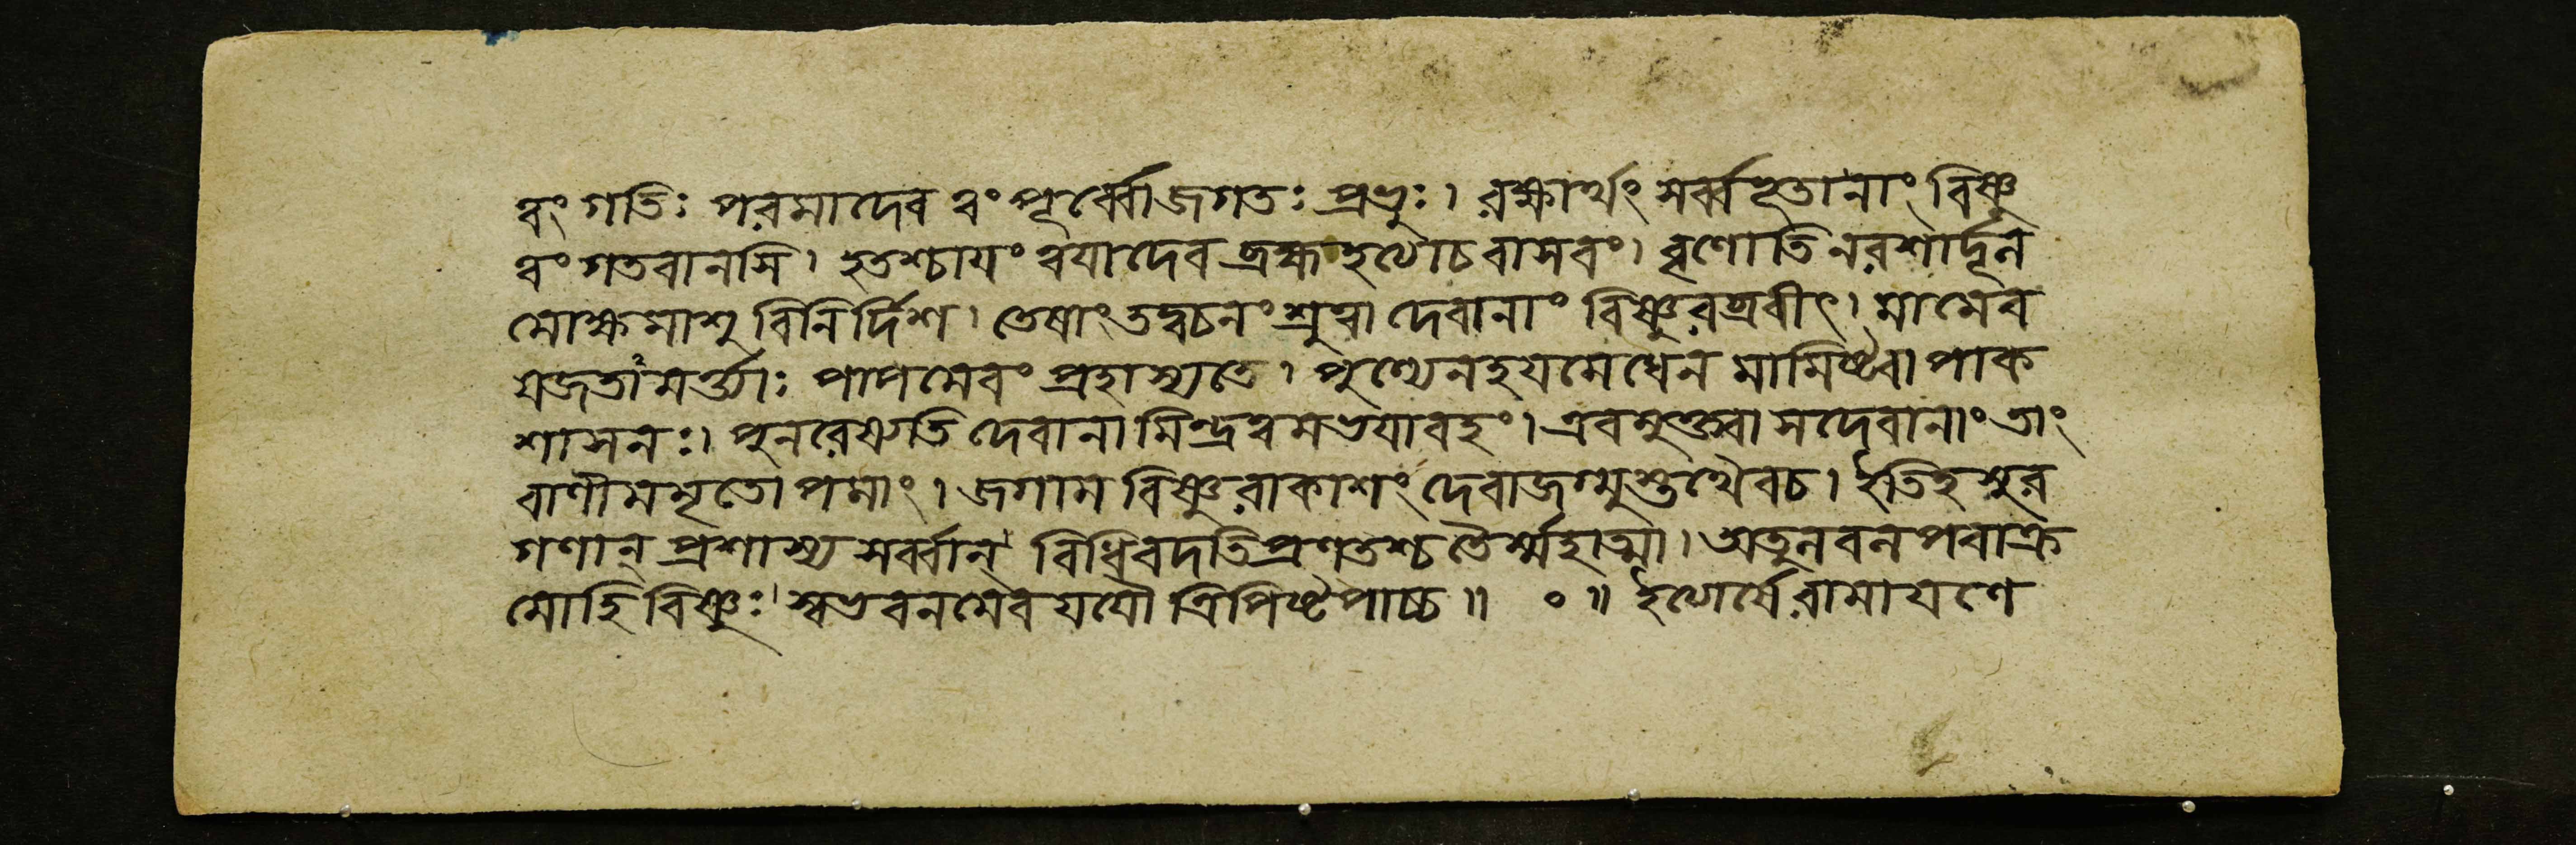 ত্বং গতিঃ পরমাদেব ত্বং পূর্ব্বোজগতঃ প্রভুঃ। রক্ষার্থং সর্ব্বভূতানাং বিষ্ণু
ত্বং গতবানসি। হতশ্চায়ং ত্বয়াদেব ব্রহ্মহত্যাচ বাসবং। বৃণোতি নরশার্দূল
মোক্ষমাশু বিনির্দিশ। তেষাং তদ্বচনং শ্রুত্বা দেবানাং বিষ্ণুরব্রবীৎ। মামেব
যজতাং মর্ত্যাঃ পাপমেবং প্রহাস্যতে। পুণ্যেন হয়মেধেন মামিষ্ট্বা পাক
শাসনঃ। পুনরেষ্যতি দেবানামিন্দ্রত্বমভয়াবহং। এবমুক্ত্বা সদেবানাং তাং
বাণীমমৃতোপমাং। জগাম বিষ্ণুরাকাশং দেবাজগ্মুস্তথৈবচ। ইতিহ সুর
গণান্ প্রশাস্য সর্ব্বান্ বিধিবদতিপ্রণতশ্চ তৈর্ম্মহাত্মা। অতুলবলপরাক্র
মোহি বিষ্ণুঃ স্বভবনমেব যযৌ ত্রিপিষ্টপাচ্চ॥ ০॥ ইত্যার্ষে রামায়ণে